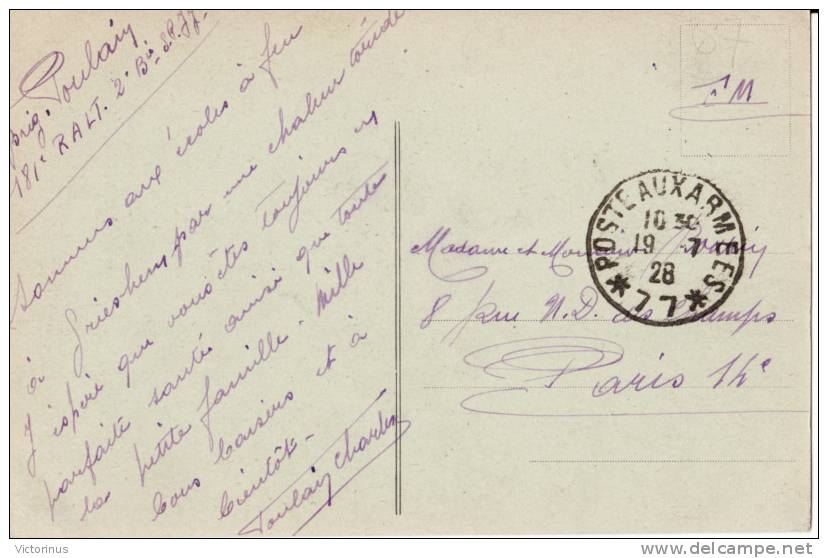 Brig. Poulain
181e RALT. 2e Bie S.P. 77.
Sommes aux écoles à feu
à Griesheim par une chaleur torride
J'espère que vous êtes toujours en
parfaite santé ainsi que toute
la petite famille. Mille
bons baisers et à
bientôt -
Poulain Charles
FM
POSTE AUX ARMEES
10 30
19 -7
28
* 77 *
Madame et Monsieur
8 Rue N.D. des Champs
Paris 14e
Victorinus
delcampe.net